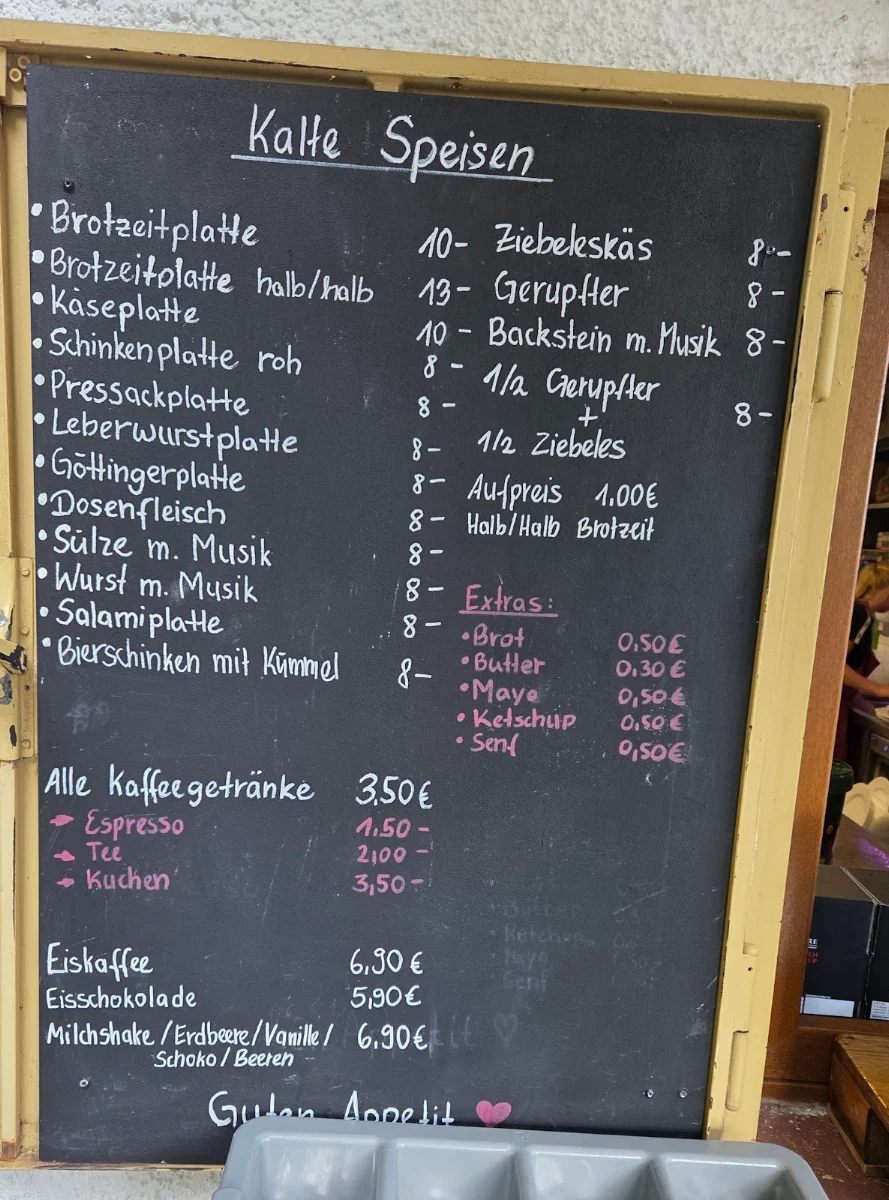 Kalte Speisen
• Brotzeitplatte 10-
• Brotzeitplatte halb/halb 13-
• Käseplatte 10-
• Schinkenplatte roh 8-
• Pressackplatte 8-
• Leberwurstplatte 8-
• Göttingerplatte 8-
• Dosenfleisch 8-
• Sülze m. Musik 8-
• Wurst m. Musik 8-
• Salamiplatte 8-
• Bierschinken mit Kümmel 8-
Ziebeleskäs 8-
Gerupfter 8-
Backstein m. Musik 8-
1/2 Gerupfter
+ 8-
1/2 Ziebeles
Aufpreis 1.00€
Halb/Halb Brotzeit
Extras:
• Brot 0,50€
• Butter 0,30€
• Mayo 0,50€
• Ketschup 0,50€
• Senf 0,50€
Alle Kaffeegetränke 3,50€
→ Espresso 1.50-
→ Tee 2,00-
→ Kuchen 3,50-
Eiskaffee 6,90€
Eisschokolade 5,90€
Milchshake/Erdbeere/Vanille/ 6.90€
Schoko/Beeren
Guten Appetit ♥